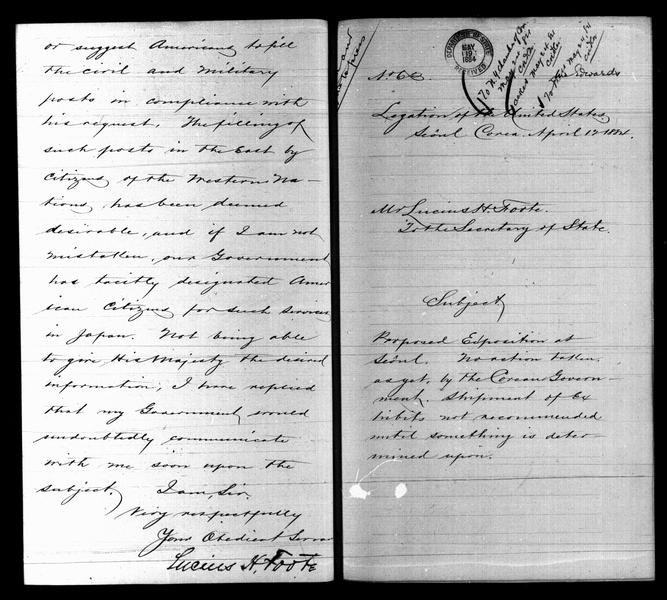 or suggest Americans to fill
the civil and military
posts in compliance with
his request. The filling of
such posts in the East by
Citizens of the Western Na-
tions, has been deemed
desirable, and if I am not
mistaken, our Government
has tacitly designated Amer
ican Citizens for such services
in Japan. Not being able
to give His Majesty the desired
information, I have replied
that my Government, would
undoubtedly communicate
with me soon upon the
subject. I am, Sir,
Very respectfully
Your Obedient Servan
Lucius H. Foote
DEPARTMENT OF STATE
MAY
19
1884
RECEIVED
Legation of the United States
Séoul Corea. April 12 1884.
Mr Lucius H. Foote.
To the Secretary of State.
Subject
Proposed Exposition at
Séoul. No action taken,
as yet, by the Corean Govern-
ment. Shipment of Ex
hibits not recommended
until something is deter-
mined upon.